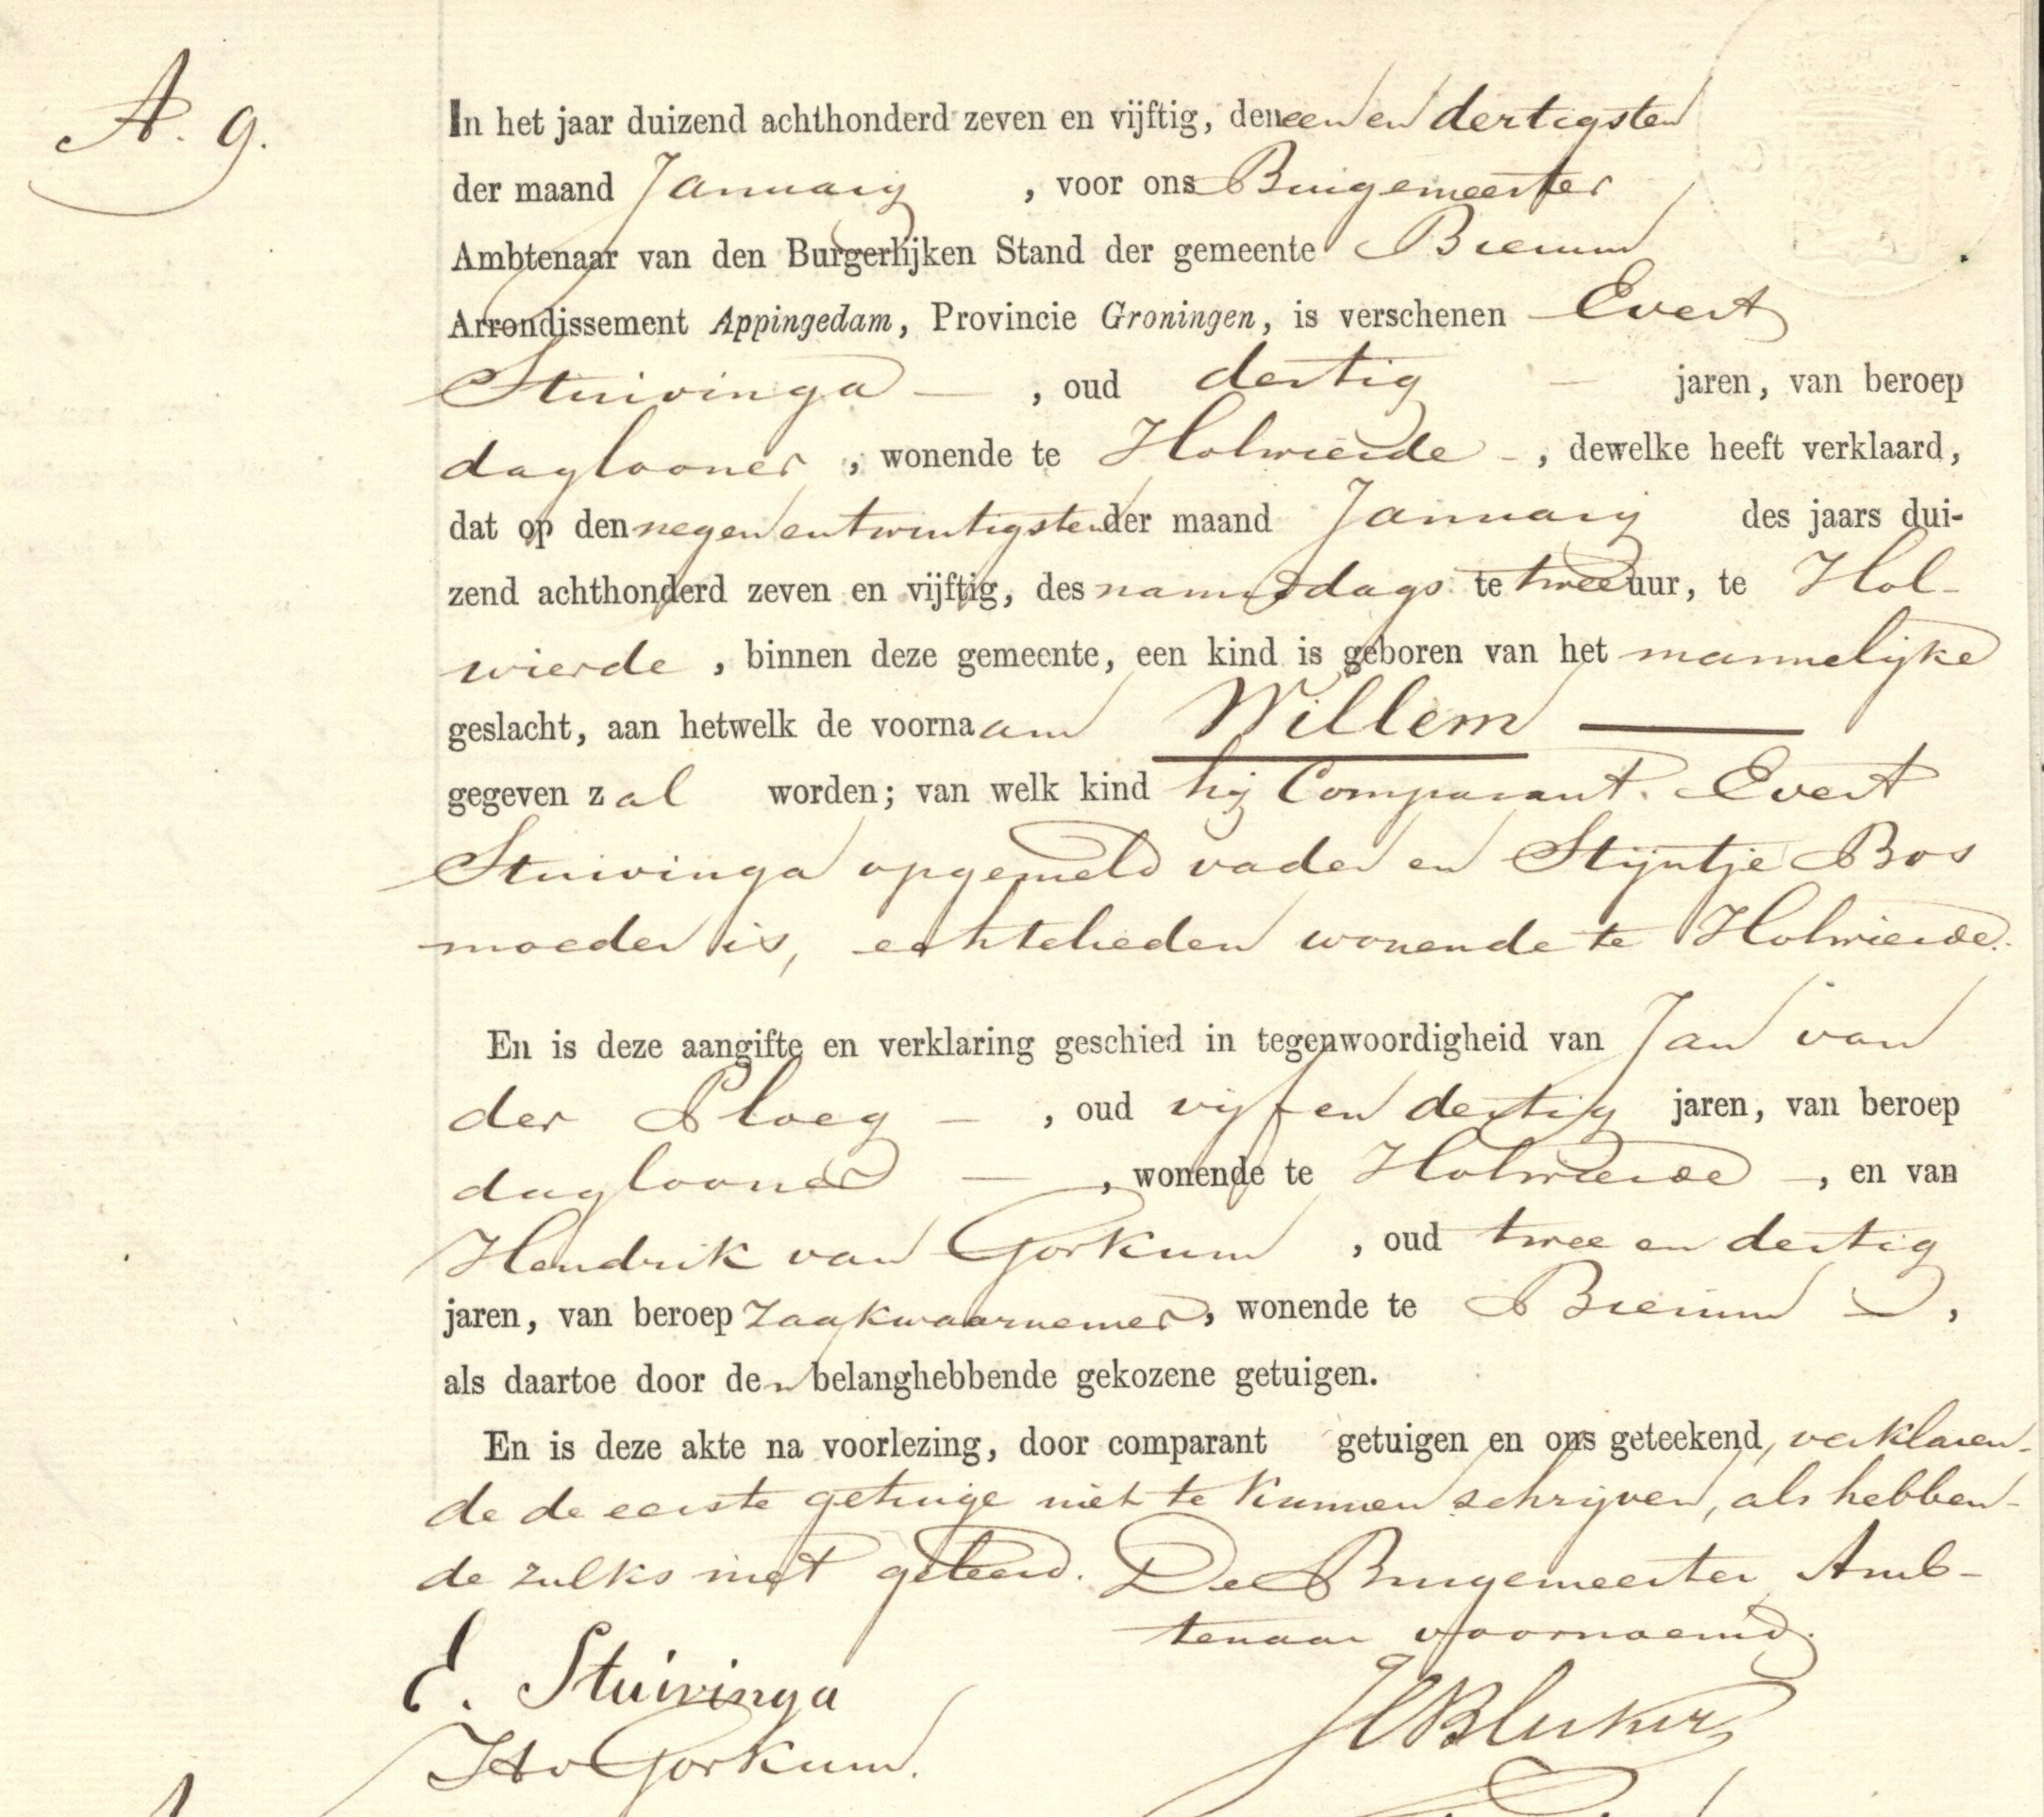 A. 9.
In het jaar duizend achthonderd zeven en vijftig, den een en dertigsten
der maand Januarij , voor ons Burgemeester
Ambtenaar van den Burgerlijken Stand der gemeente Bierum
Arrondissement Appingedam, Provincie Groningen, is verschenen Evert
Stuivinga — , oud dertig — jaren, van beroep
daglooner , wonende te Holwierde - , dewelke heeft verklaard,
dat op den negen en twintigsten der maand Januarij des jaars dui-
zend achthonderd zeven en vijftig, des namiddags te twee uur, te Hol-
wierde , binnen deze gemeente, een kind is geboren van het mannelijke
geslacht, aan hetwelk de voornaam Willem —
gegeven zal worden; van welk kind hij Comparant. Evert
Stuivinga opgemeld vader en Stijntje Bos
moeder is, echtelieden wonende te Holwierde.
En is deze aangifte en verklaring geschied in tegenwoordigheid van Jan van
der Ploeg — , oud vijf en dertig jaren, van beroep
daglooner — , wonende te Holwierde - , en van
Hendrik van Gorkum , oud twee en dertig
jaren, van beroep zaakwaarnemer, wonende te Bierum — ,
als daartoe door den belanghebbende gekozene getuigen.
En is deze akte na voorlezing, door comparant getuigen en ons geteekend, verklaren-
de de eerste getuige niet te kunnen schrijven, als hebben-
de zulks niet geleerd. De Burgemeester Amb-
tenaar voornoemd.
E. Stuivinga
HvGorkum.